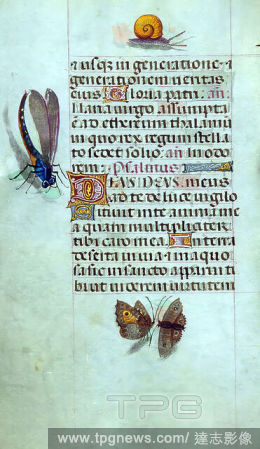 & usq; in generatione · &
generationem veritas
eius Gloria patri · añ
Maria virgo assumpta
ẽ ad ethereum thalamũ
in quo rex regum stellato
sedet solio · añ In odorem ·
Psalmus
DEUS DEUS meus
ad te de luce vigilo
Sitiuit in te anima mea
quam multipliciter
tibi caro mea In terra
deserta inuia
in sancto apparui ti
bi ut viderem uirtutem
TPG
www.tpgnews.com/ 達志影像